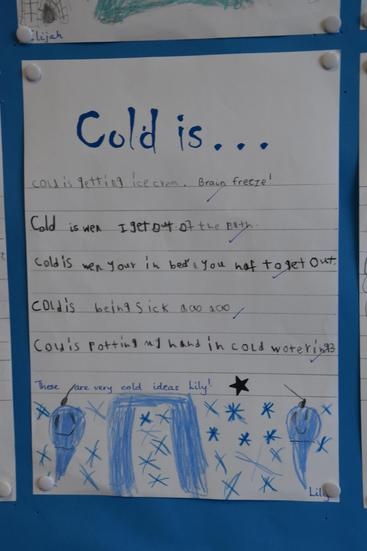 Elijah
Cold is...
cold is getting ice cream. Brain freeze!
Cold is wen I get out of the bath.
Cold is wen your in bed & you haf to get out.
cold is being sick aoo aoo
Cold is potting my hand in cold water
These are very cold ideas Lily!
Lily